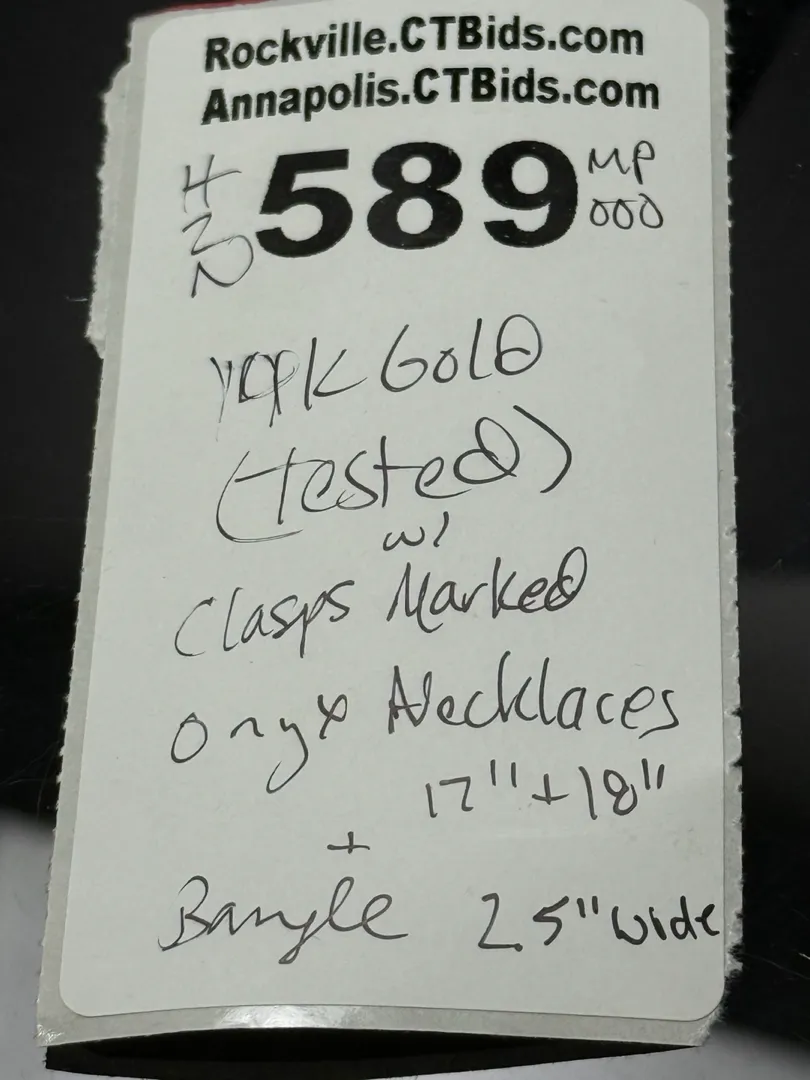 Rockville.CTBids.com
Annapolis.CTBids.com
589
MP
000
H
2
N
K Gold
(tested)
w/
Clasps Marked
Onyx Necklaces
17" + 18"
+
Bangle 2.5" wide